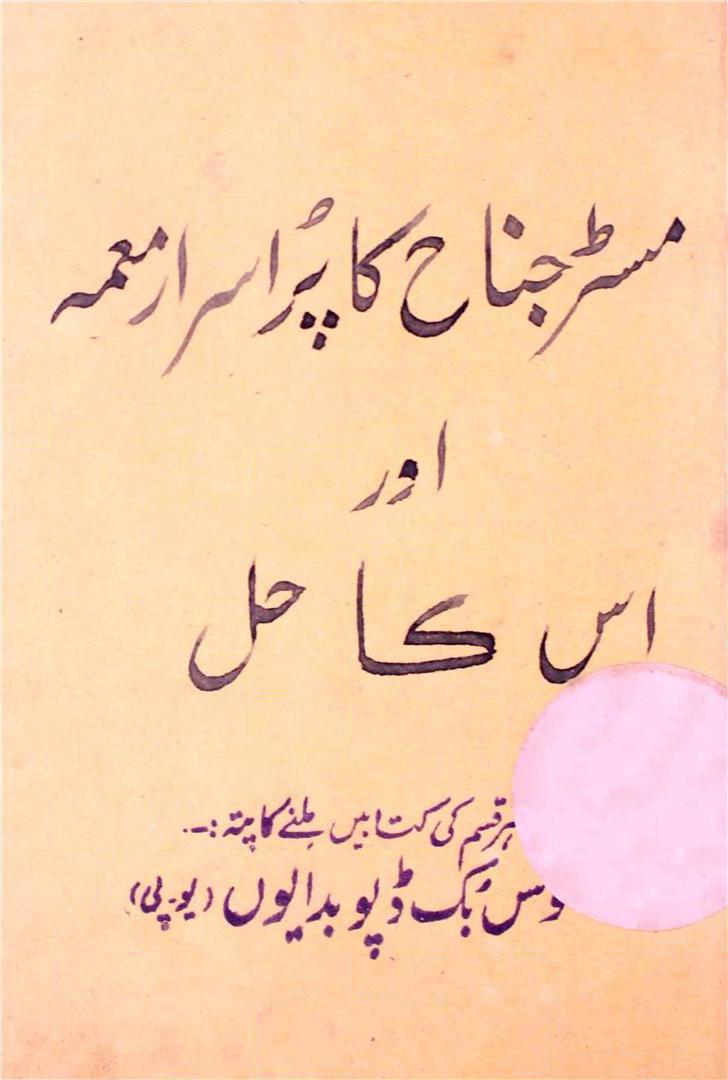 مسٹر جناح کا پُر اسرار معمہ
اور
اس کا حل
ہر قسم کی کتابیں ملنے کا پتہ :-
بک ڈپو بدایوں (یو-پی)